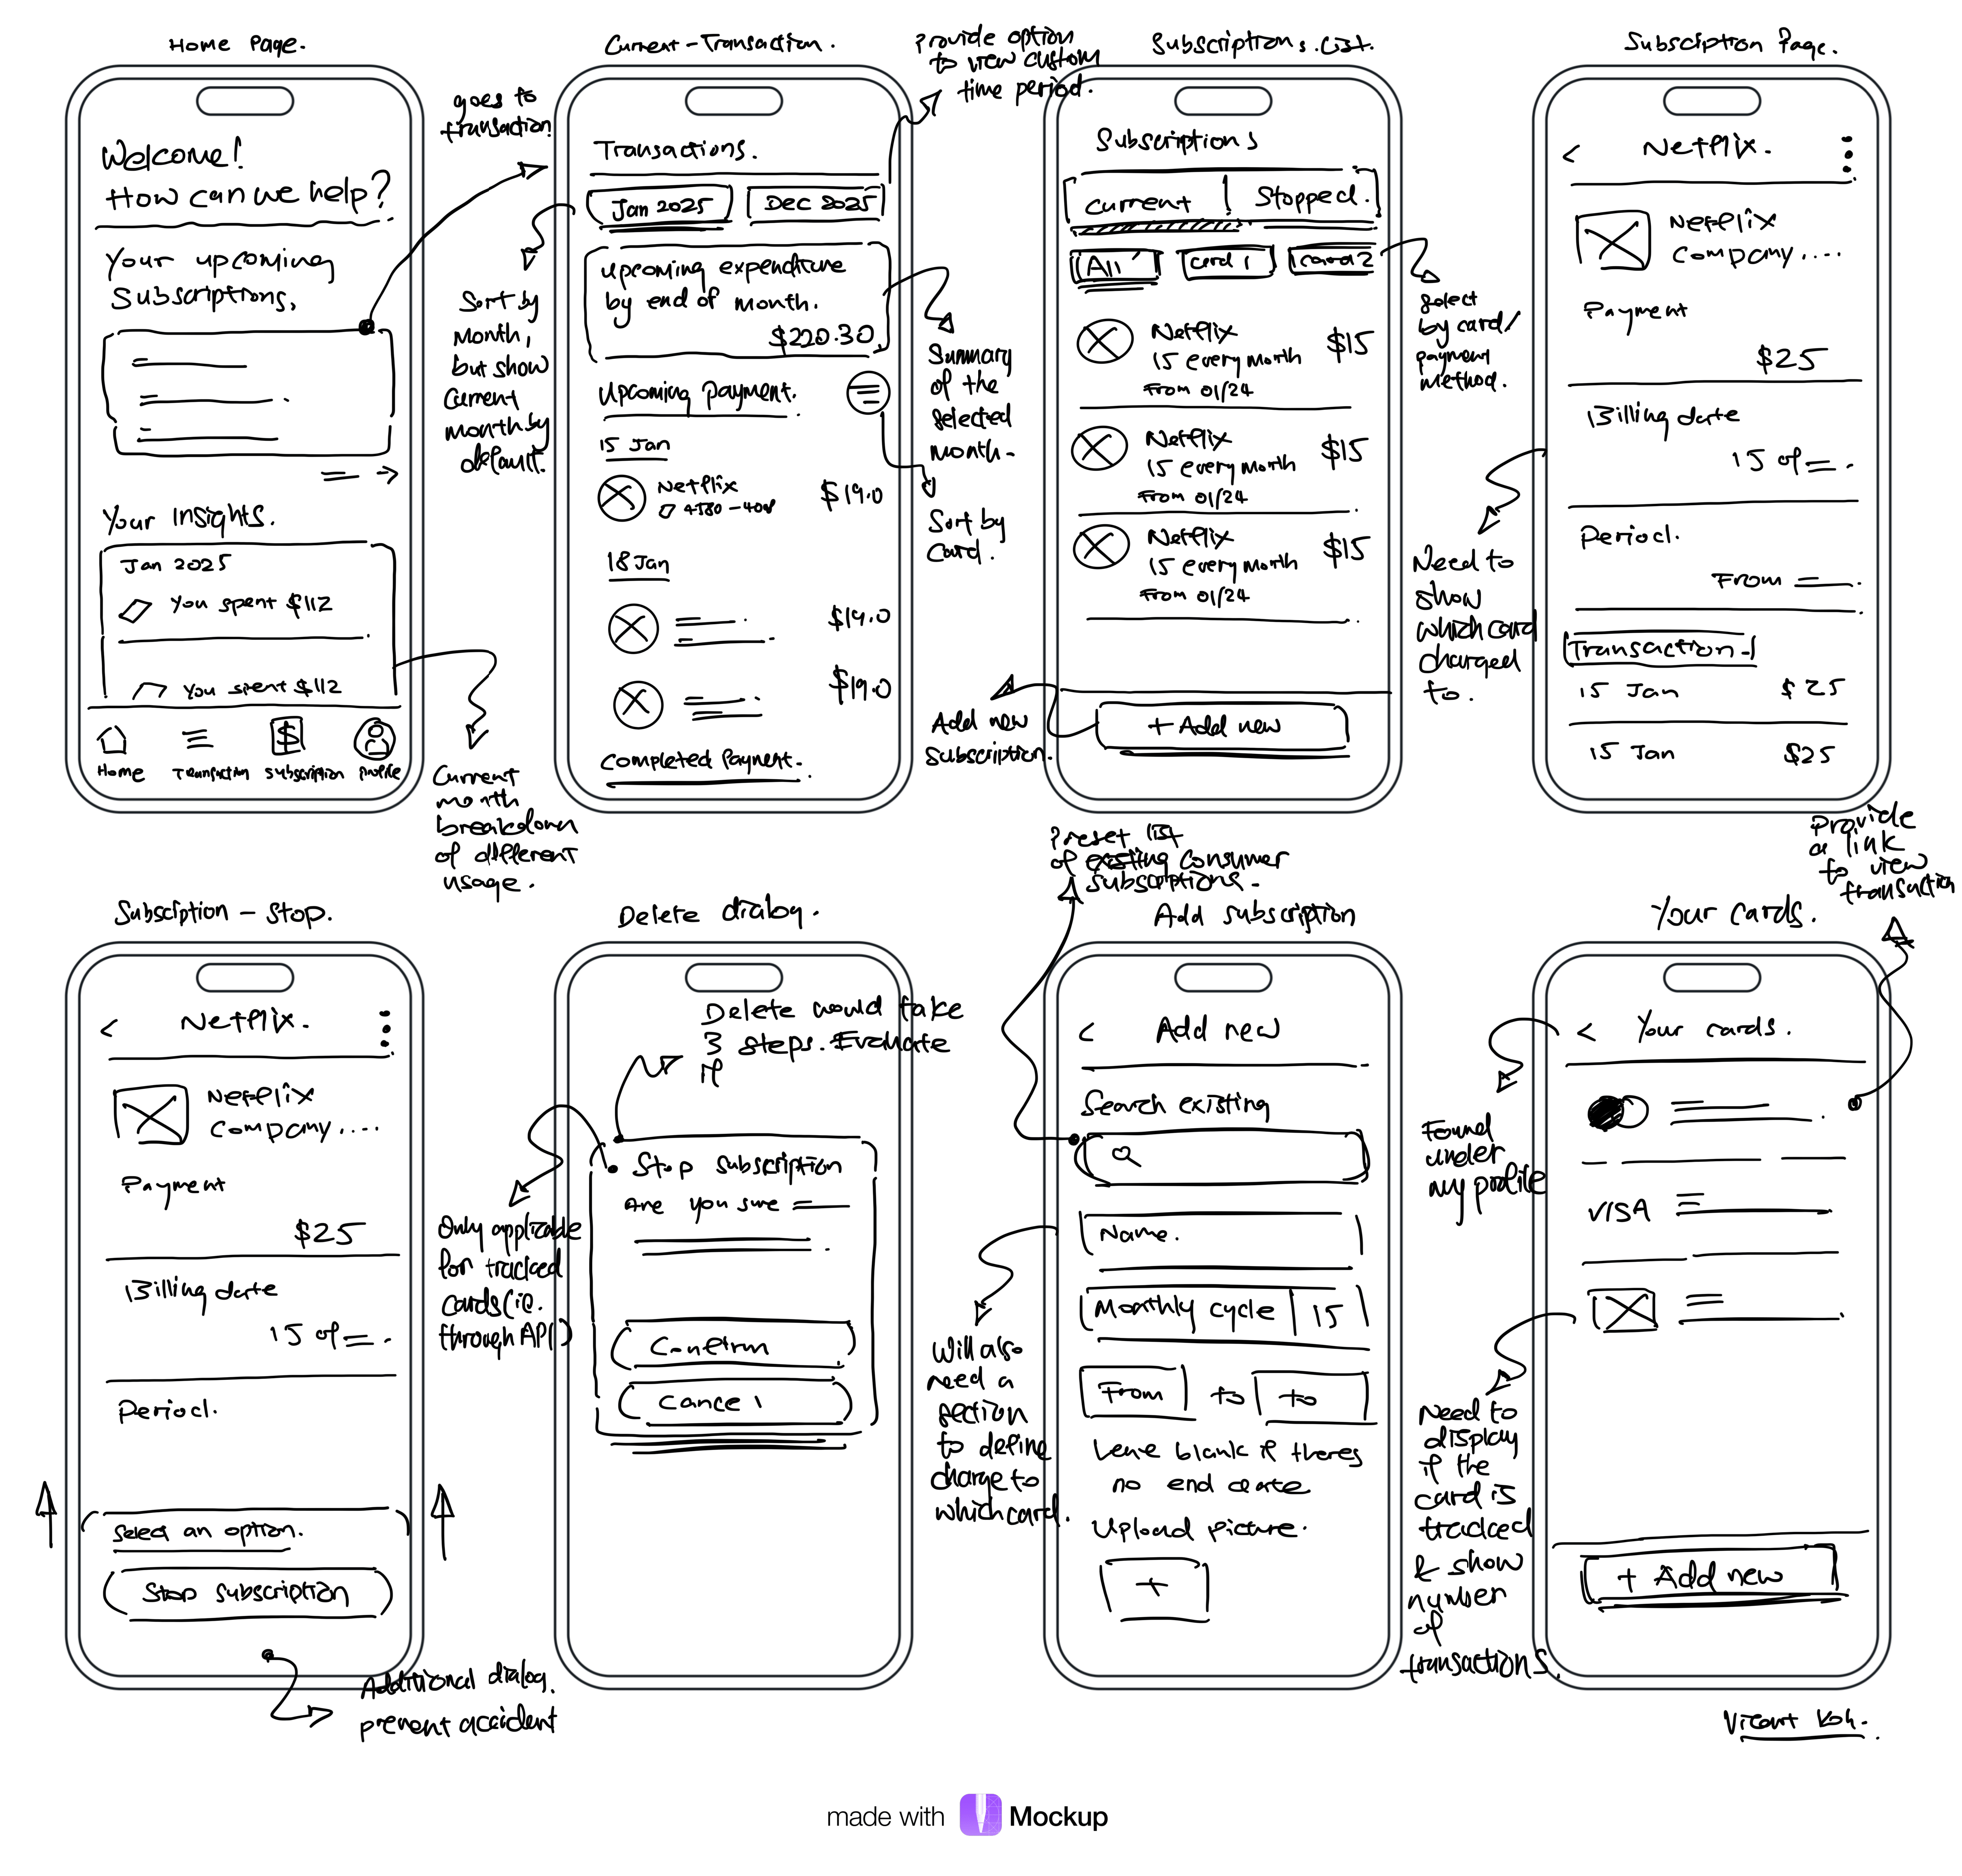 Home Page.
Welcome!
How can we help?
Your upcoming
Subscriptions,
Your Insights.
Jan 2025
You spent $112
You spent $112
Home
Transaction
Subscription
Profile
goes to
transaction
Sort by
Month,
but show
Current
month by
default.
Current
month
breakdown
of different
usage.
Current - Transaction.
Transactions.
Jan 2025
Dec 2025
Upcoming expenditure
by end of month.
$220.30
Upcoming payment.
15 Jan
Netflix
$19.0
18 Jan
$19.0
$19.0
Completed Payment.
Provide option
to view custom
time period.
Summary
of the
selected
month.
Sort by
Card.
Subscriptions List.
Subscriptions
Current
Stopped.
All
Card 1
Card 2
Netflix
15 every month
From 01/24
$15
Netflix
15 every month
From 01/24
$15
Netflix
15 every month
From 01/24
$15
+ Add new
Add new
subscription.
Select
by card/
payment
method.
Subscription Page.
< Netflix.
Netflix
Company....
Payment
$25
Billing date
15 of
Period.
From
Transaction
15 Jan $25
15 Jan $25
Need to
show
which card
charged
to.
Subsciption - Stop.
< Netflix.
Netflix
Company....
Payment
$25
Billing date
15 of
Period.
Select an option.
Stop subscription
Additional dialog.
prevent accident
Delete dialog.
Delete would take
3 steps. Evaluate
if
Stop subscription
Are you sure
Confirm
Cancel
Only applicable
for tracked
cards (ie.
through API)
Preset list
of existing consumer
subscriptions.
Add subscription
< Add new
Search existing
Name.
Monthly cycle | 15
From to to
Leave blank if theres
no end date
Upload picture.
+
Will also
need a
section
to define
charge to
which card.
Provide
a link
to view
transaction
Your cards.
< Your cards.
VISA
+ Add new
Found
under
my profile
Need to
display
if the
card is
tracked
& show
number
of
transactions.
made with Mockup